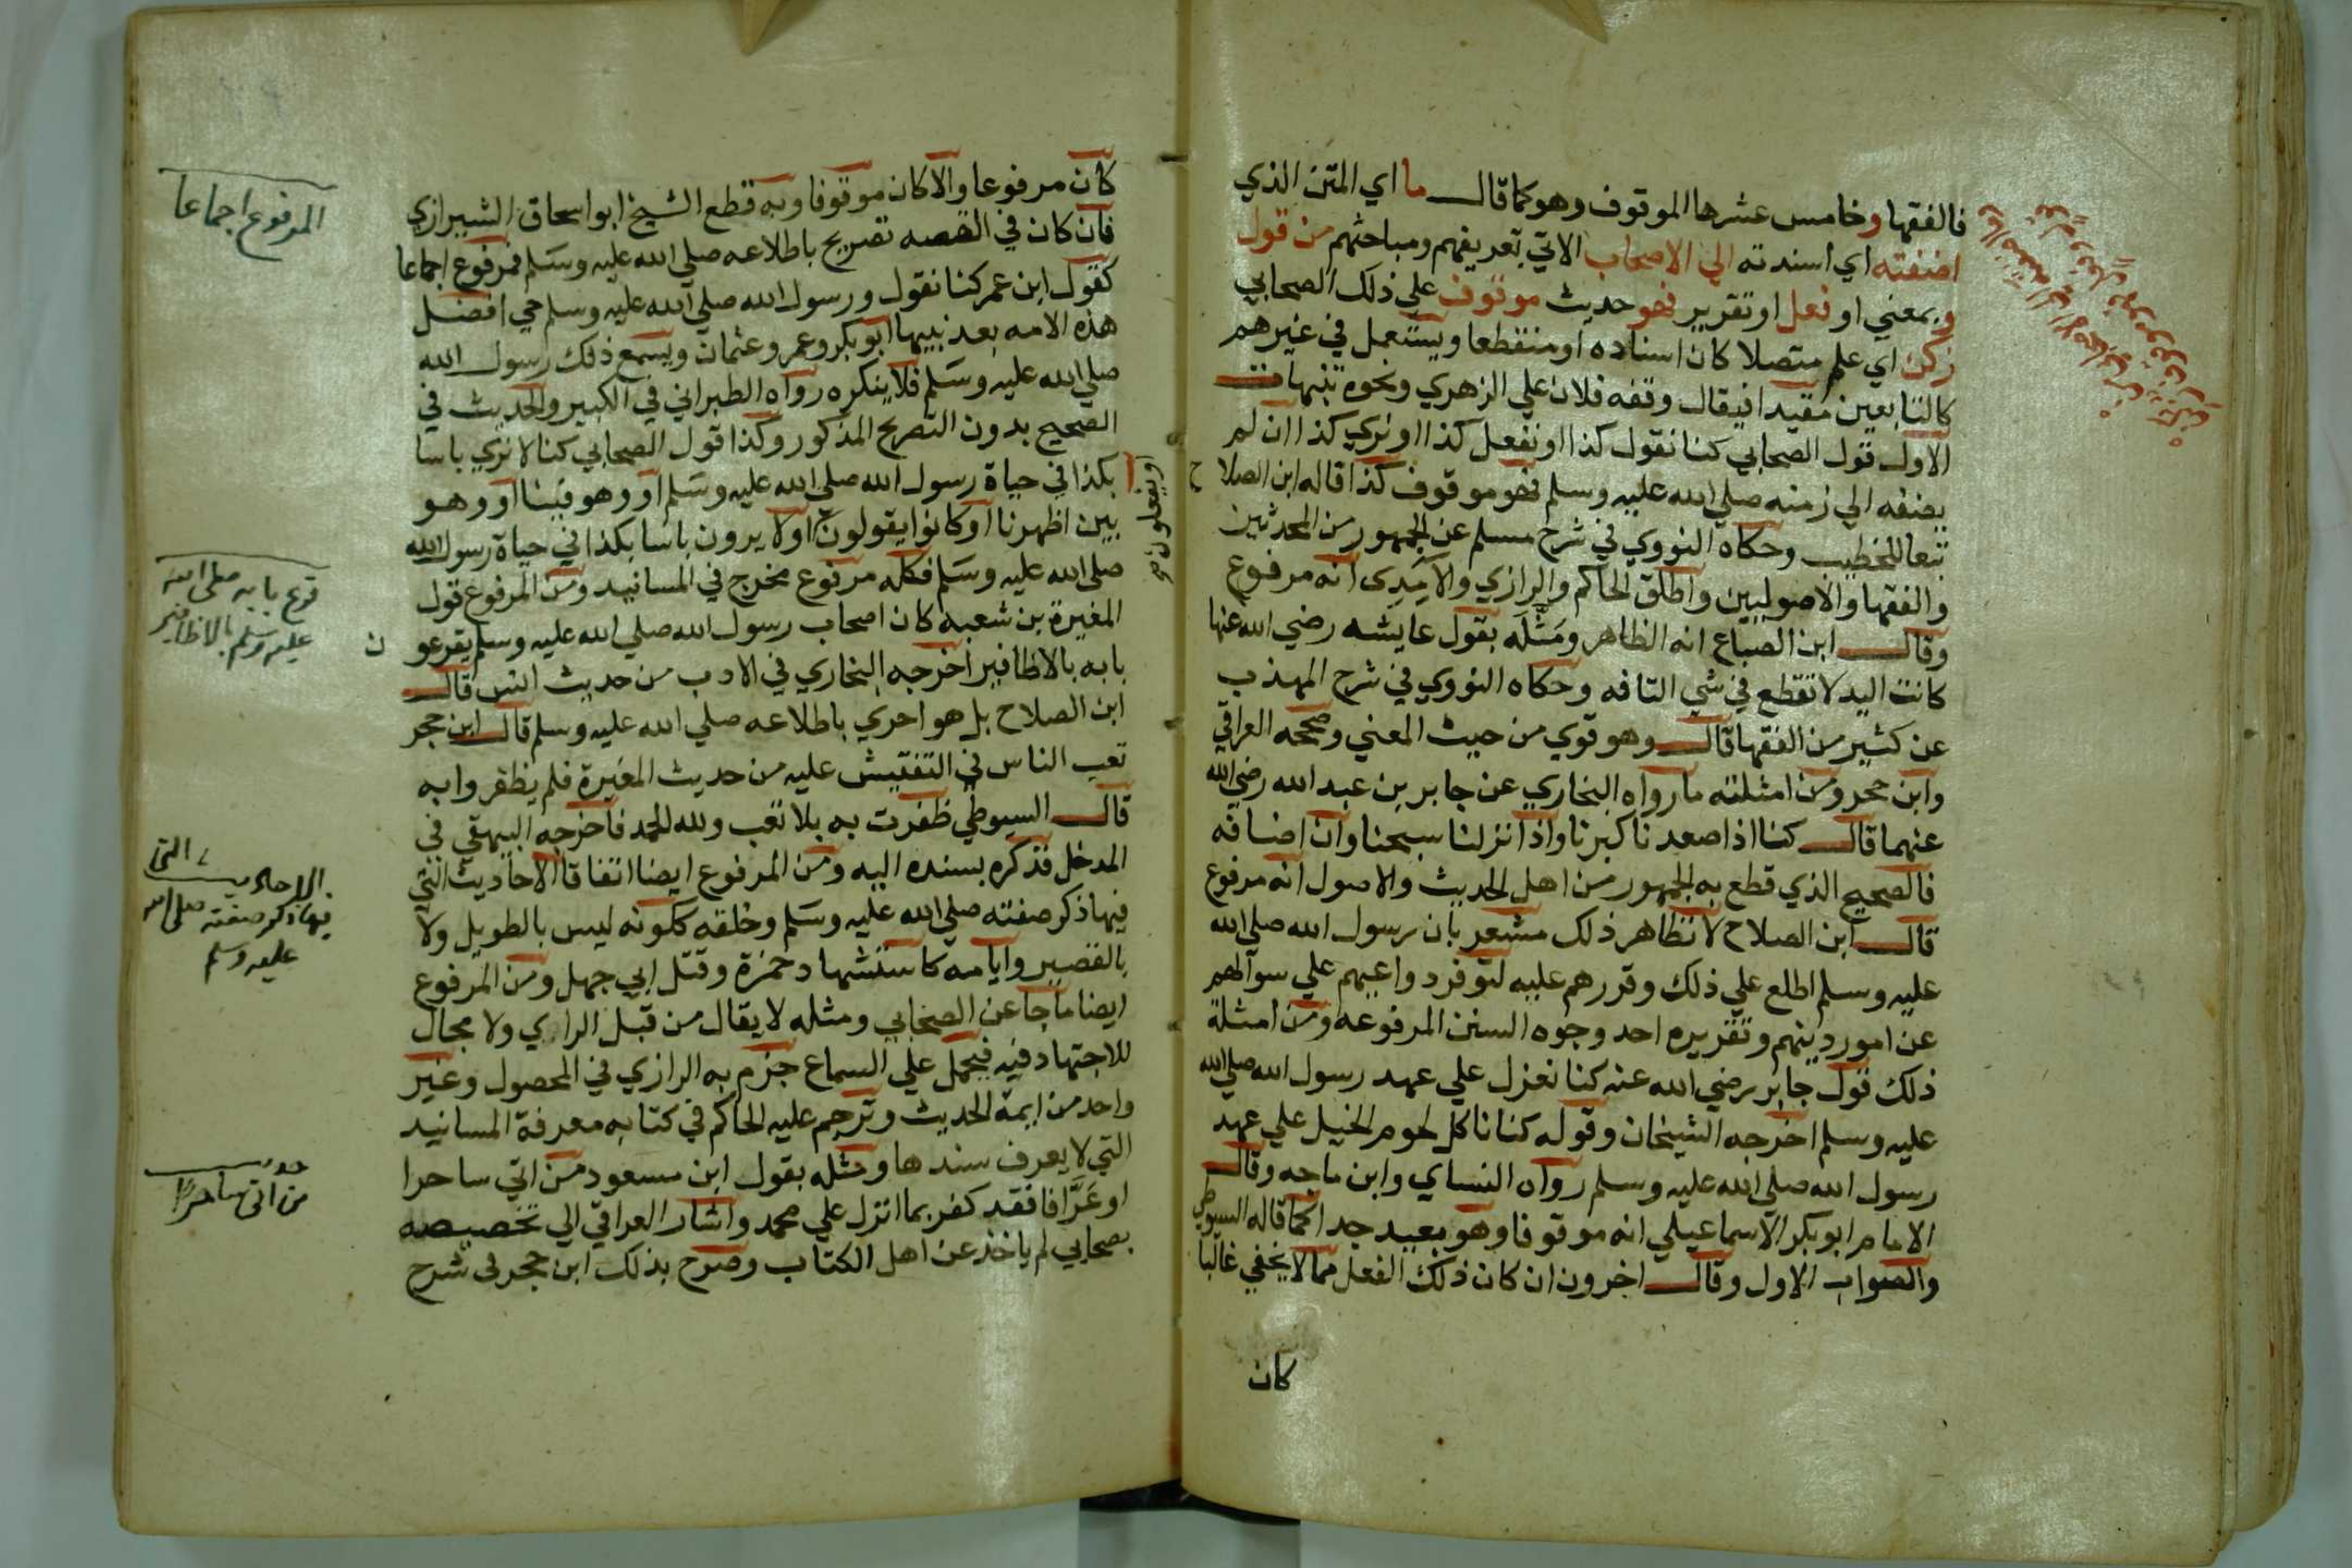 فالفقها وخامس عشرها الموقوف وهو كما قال ما اي المتن الذي
اضفته اي اسندته الي الاصحاب الاتي تعريفهم ومباحثهم من قول
وبمعني او فعل او تقرير فهو حديث موقوف علي ذلك الصحابي
زكن اي علم متصلا كان اسناده او منقطعا ويستعمل في غيرهم
كالتابعين مقيدا فيقال وقفه فلان علي الزهري ونحوه تنبيهات
الاول قول الصحابي كنا نقول كذا او نفعل كذا او نري كذا ان لم
يضفه الي زمنه صلي الله عليه وسلم فهو موقوف كذا قاله ابن الصلاح
تبعا للخطيب وحكاه النووي في شرح مسلم عن الجمهور من المحدثين
والفقها والاصوليين واطلق الحاكم والرازي والامدي انه مرفوع
وقال ابن الصباغ انه الظاهر ومثله بقول عايشه رضي الله عنها
كانت اليد لا تقطع في شي التافه وحكاه النووي في شرح المهذب
عن كثير من الفقها قال وهو قوي من حيث المعني وصححه العراقي
وابن حجر ومن امثلته ما رواه البخاري عن جابر بن عبد الله رضي الله
عنهما قال كنا اذا صعدنا كبرنا واذا نزلنا سبحنا وان اضافه
فالصحيح الذي قطع به الجمهور من اهل الحديث والاصول انه مرفوع
قال ابن الصلاح لان ظاهر ذلك مشعر بان رسول الله صلي الله
عليه وسلم اطلع علي ذلك وقررهم عليه لتوفر دواعيهم علي سوالهم
عن امور دينهم وتقريره احد وجوه السنن المرفوعه ومن امثلة
ذلك قول جابر رضي الله عنه كنا نعزل علي عهد رسول الله صلي الله
عليه وسلم اخرجه الشيخان وقوله كنا ناكل لحوم الخيل علي عهد
رسول الله صلي الله عليه وسلم رواه النساي وابن ماجه وقال
الامام ابو بكر الاسماعيلي انه موقوفا وهو بعيد جدا كما قاله السيوطي
والصواب الاول وقال اخرون ان كان ذلك الفعل مما لا يخفي غالبا
كان
كان مرفوعا والا كان موقوفا وبه قطع الشيخ ابو اسحاق الشيرازي
فان كان في القصه تصريح باطلاعه صلي الله عليه وسلم فمرفوع اجماعا
كقول ابن عمر كنا نقول ورسول الله صلي الله عليه وسلم حي افضل
هذه الامه بعد نبيها ابو بكر وعمر وعثمان ويسمع ذلك رسول الله
صلي الله عليه وسلم فلا ينكره رواه الطبراني في الكبير والحديث في
الصحيح بدون التصريح المذكور وكذا قول الصحابي كنا لا نري باسا
بكذا في حياة رسول الله صلي الله عليه وسلم او وهو فينا او وهو
بين اظهرنا او كانوا يقولون او لا يرون باسا بكذا في حياة رسول الله
صلي الله عليه وسلم فكله مرفوع مخرج في المسانيد ومن المرفوع قول
المغيرة بن شعبه كان اصحاب رسول الله صلي الله عليه وسلم يقرعون
بابه بالاظافير اخرجه البخاري في الادب من حديث انس قال
ابن الصلاح بل هو احري باطلاعه صلي الله عليه وسلم قال ابن حجر
تعب الناس في التفتيش عليه من حديث المغيرة فلم يظفروا به
قال السيوطي ظفرت به بلا تعب ولله الحمد فاخرجه البيهقي في
المدخل فذكره بسنده اليه ومن المرفوع ايضا اتفاقا الاحاديث التي
فيها ذكر صفته صلي الله عليه وسلم وخلقه ككونه ليس بالطويل ولا
بالقصير وايامه كاستشهاد حمزة وقتل ابي جهل ومن المرفوع
ايضا ما جا عن الصحابي ومثله لا يقال من قبل الراي ولا مجال
للاجتهاد فيه فيحمل علي السماع جزم به الرازي في المحصول وغير
واحد من ايمة الحديث وترجم عليه الحاكم في كتابه معرفة المسانيد
التي لا يعرف سندها ومثله بقول ابن مسعود من اتي ساحرا
او عرافا فقد كفر بما انزل علي محمد واشار العراقي الي تخصيصه
بصحابي لم ياخذ عن اهل الكتاب وصرح بذلك ابن حجر في شرح
او يفعلون صح
المرفوع اجماعا
قرع بابه صلى الله
عليه وسلم بالاظافير
الاحاديث التي
فيها ذكر صفته صلى الله
عليه وسلم
من اتى ساحرا